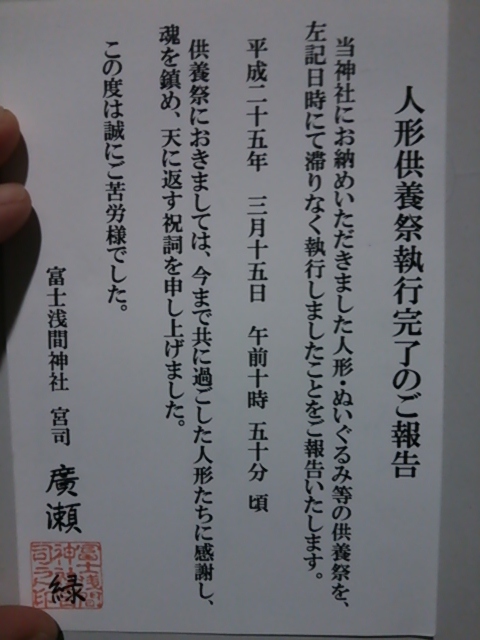 人形供養祭執行完了のご報告
当神社にお納めいただきました人形・ぬいぐるみ等の供養祭を、
左記日時にて滞りなく執行しましたことをご報告いたします。
平成二十五年 三月十五日 午前十時 五十分 頃
供養祭におきましては、今まで共に過ごした人形たちに感謝し、
魂を鎮め、天に返す祝詞を申し上げました。
この度は誠にご苦労様でした。
富士浅間神社 宮司 廣瀬 緑
富士浅間
神社宮
司之印